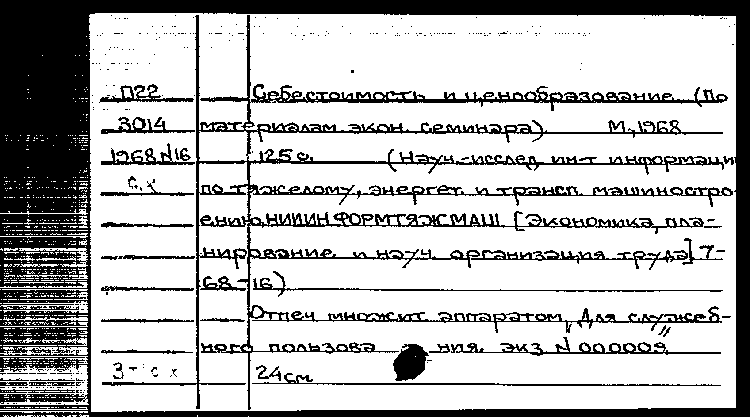 П22 Себестоимость и ценообразование (По
3014 материалам экон. семинара). М, 1968
1968 N16 125 с. (Науч.-исслед. ин-т информации
с.х по тяжелому, энергет. и трансп. машиностро-
ению, НИИИНФОРМТЯЖМАШ. [Экономика, пла-
нирование и науч. организация труда] 7-
68-16)
Отпеч множит аппаратом, „Для служеб-
ного пользования." экз N 000009.
3-с х 24см